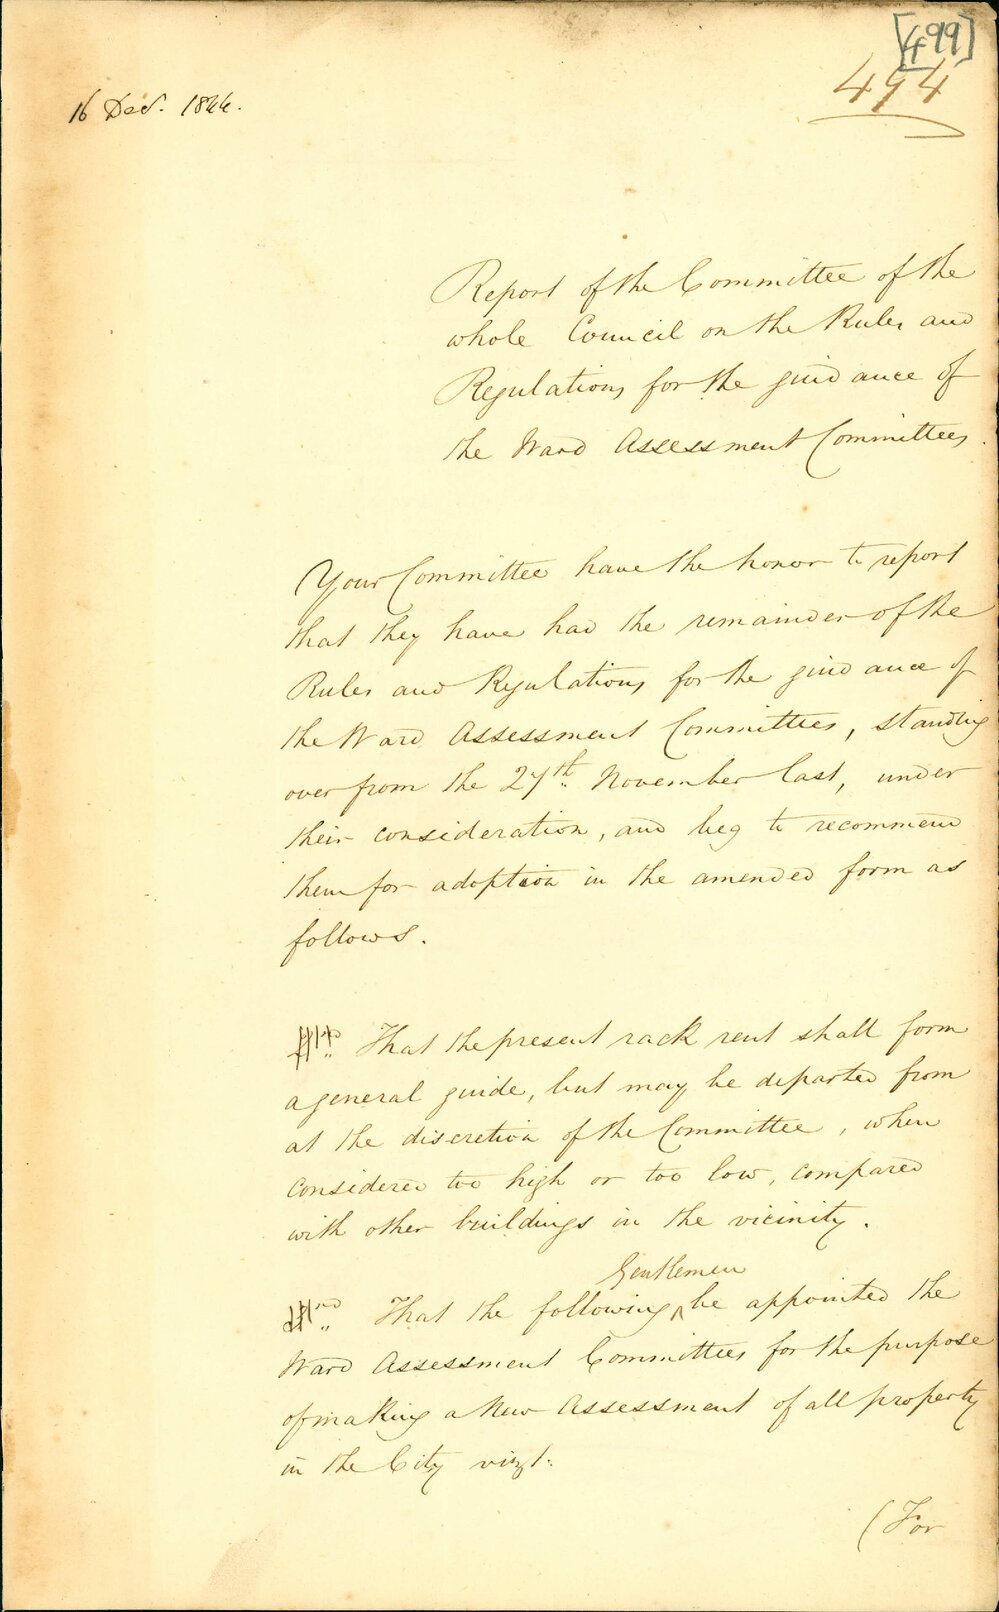 [499]
494
16 Decr. 1844.
Report of the Committee of the
whole Council on the Rules and
Regulations for the guidance of
the Ward Assessment Committees.
Your Committee have the honor to report
that they have had the remainder of the
Rules and Regulations for the guidance of
the Ward Assessment Committees, standing
over from the 27th. November last, under
their consideration, and beg to recommend
them for adoption in the amended form as
follows.
That the present rack rent shall form
a general guide, but may be departed from
at the discretion of the Committee, when
considered too high or too low, compared
with other buildings in the vicinity.
Gentlemen
That the following ^ be appointed the
Ward Assessment Committees for the purpose
of making a New Assessment of all property
in the City vizt.
(For